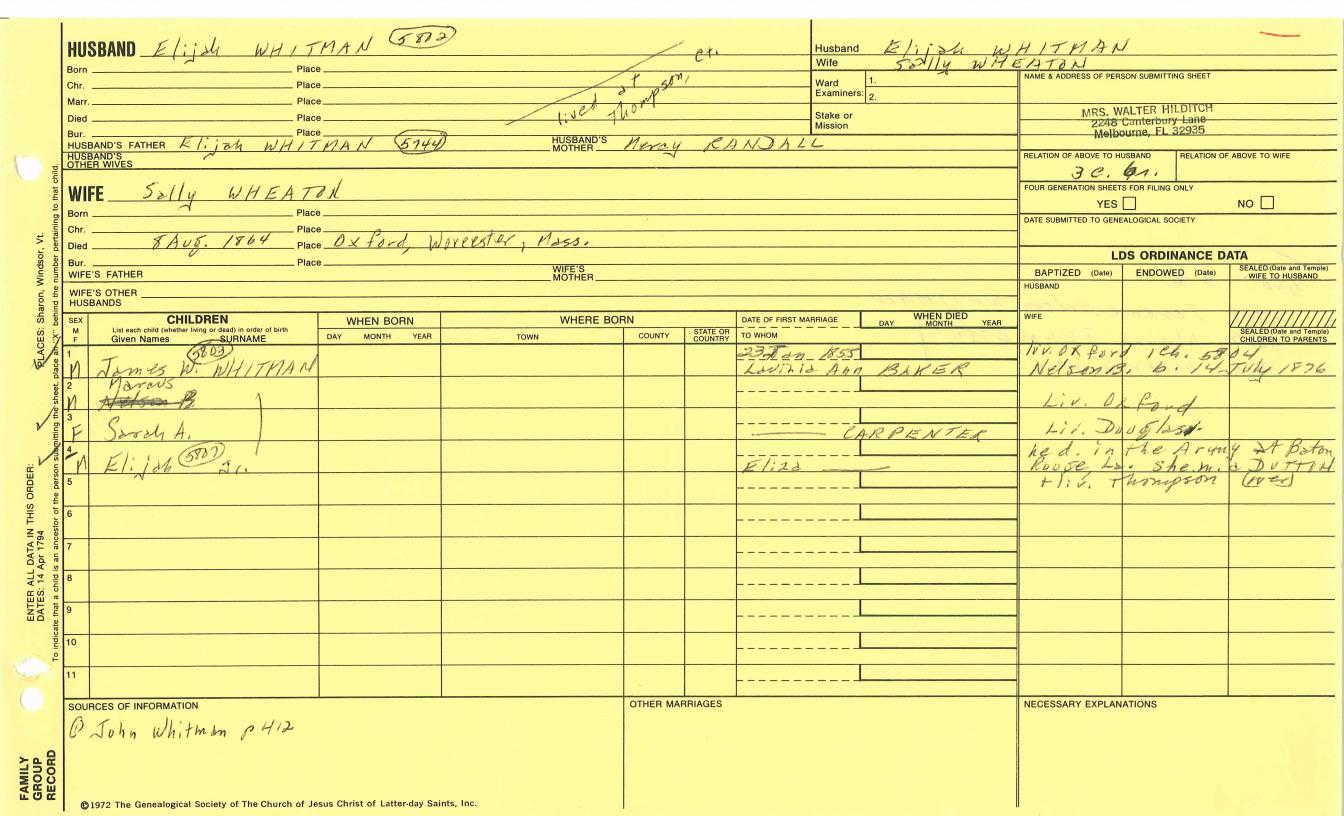 HUSBAND Elijah WHITMAN 5802
Born Place
Chr. Place
Marr. Place
Died Place
Bur. Place
lived at Thompson, Ct.
HUSBAND'S FATHER Elijah WHITMAN 5744 HUSBAND'S MOTHER Mercy RANDALL
HUSBAND'S OTHER WIVES
WIFE Sally WHEATON
Born Place
Chr. Place
Died 8 Aug. 1864 Place Oxford, Worcester, Mass.
Bur. Place
WIFE'S FATHER WIFE'S MOTHER
WIFE'S OTHER HUSBANDS
Husband Elijah WHITMAN
Wife Sally WHEATON
Ward Examiners: 1. 2.
Stake or Mission
NAME & ADDRESS OF PERSON SUBMITTING SHEET
MRS. WALTER HILDITCH
2248 Canterbury Lane
Melbourne, FL 32935
RELATION OF ABOVE TO HUSBAND RELATION OF ABOVE TO WIFE
3 c.
FOUR GENERATION SHEETS FOR FILING ONLY
YES NO
DATE SUBMITTED TO GENEALOGICAL SOCIETY
LDS ORDINANCE DATA
BAPTIZED (Date) ENDOWED (Date) SEALED (Date and Temple) WIFE TO HUSBAND
HUSBAND
WIFE
SEALED (Date and Temple) CHILDREN TO PARENTS
SEX M F
CHILDREN
List each child (whether living or dead) in order of birth
Given Names SURNAME
WHEN BORN
DAY MONTH YEAR
WHERE BORN
TOWN COUNTY STATE OR COUNTRY
DATE OF FIRST MARRIAGE
TO WHOM
WHEN DIED
DAY MONTH YEAR
1 M James W. WHITMAN 5803 Jan 1855 Lavinia Ann BAKER liv. Oxford 1 ch. 5804 Nelson B. b. 14 July 1876
2 M Marcus Nelson B Liv. Oxford
3 F Sarah A. CARPENTER Liv. Douglas
4 M Elijah 5807 Jr. Eliza he d. in the Army at Baton Rouge La. she m. a DUTTON
5 + liv. Thompson (over)
6
7
8
9
10
11
SOURCES OF INFORMATION
John Whitman p 412
OTHER MARRIAGES
NECESSARY EXPLANATIONS
©1972 The Genealogical Society of The Church of Jesus Christ of Latter-day Saints, Inc.
FAMILY GROUP RECORD
ENTER ALL DATA IN THIS ORDER:
DATES: 14 Apr 1794
PLACES: Sharon, Windsor, Vt.
To indicate that a child is an ancestor of the person submitting the sheet, place an "X" behind the number pertaining to that child.